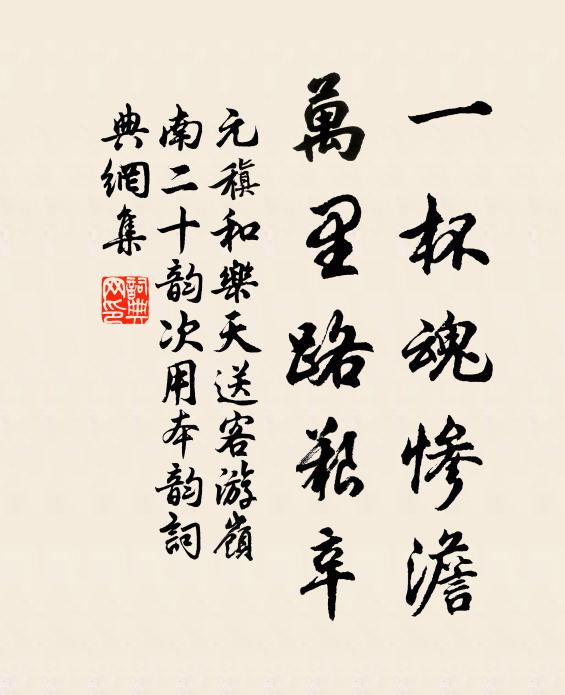 一杯魂慘澹
萬里路艱辛
元稹和樂天送客游嶺
南二十韵次用本韵詞
典網集
詞典网印